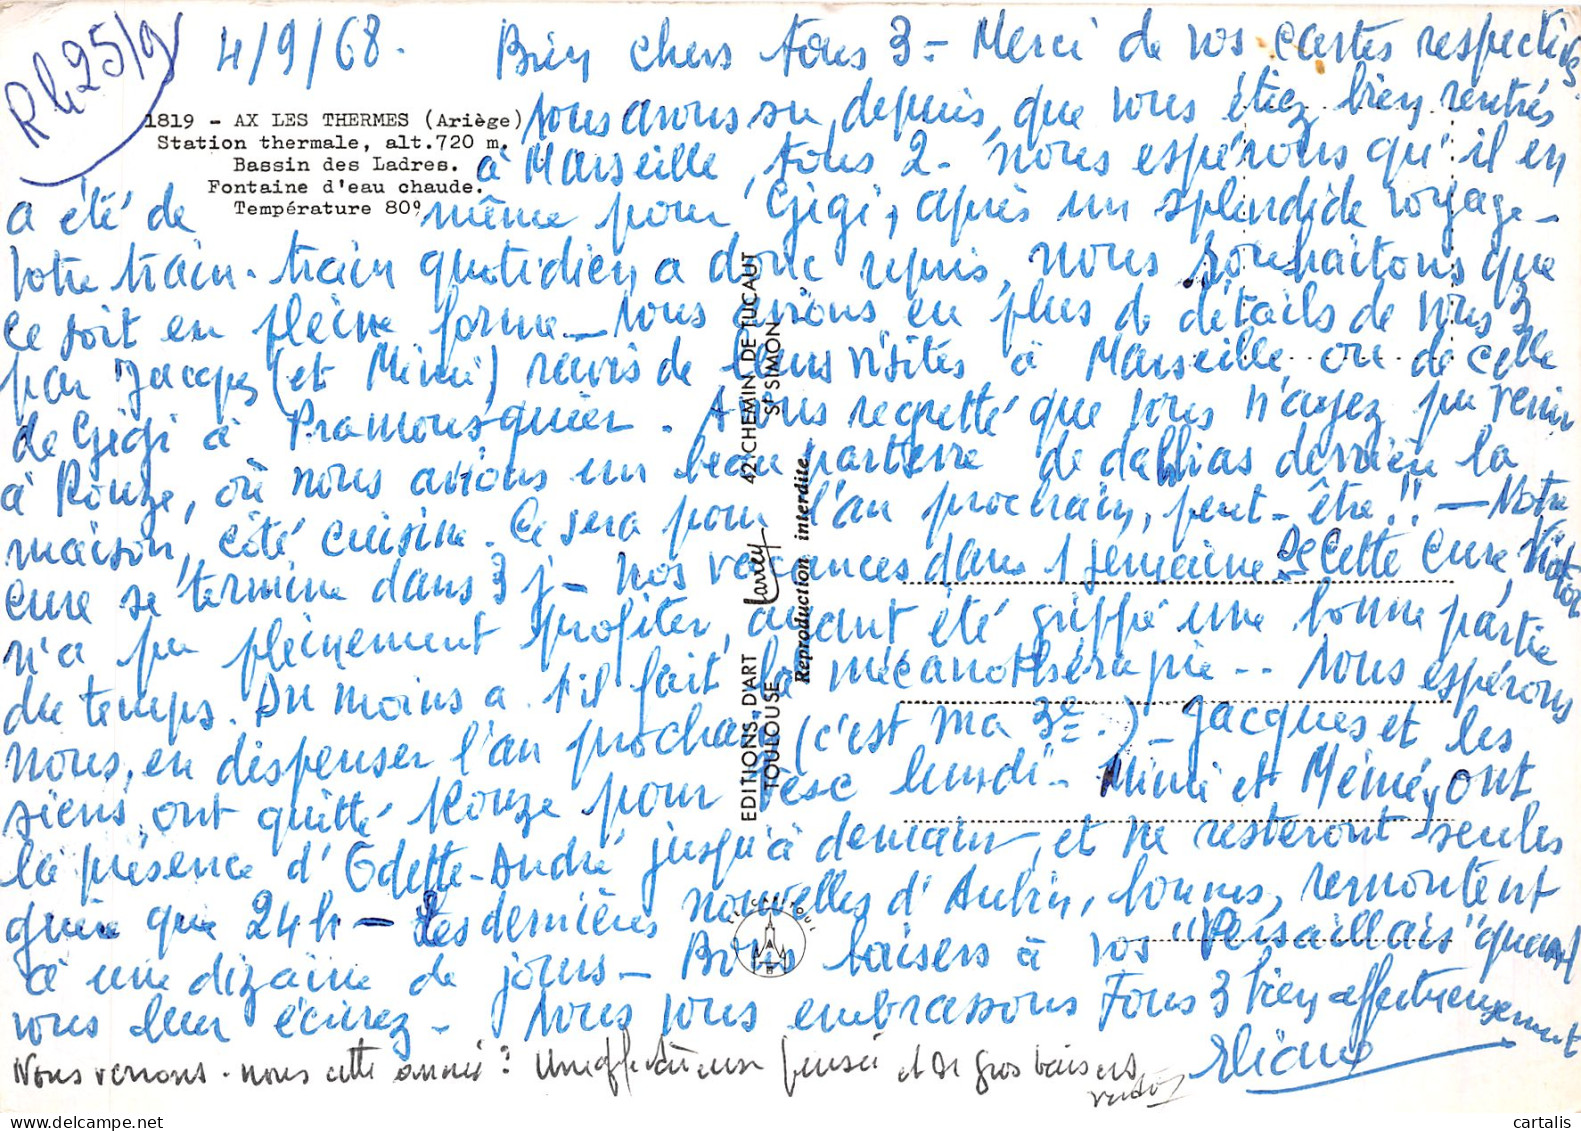 Rh 25/9
4/9/68. Bien chers tous 3 - Merci de vos cartes respectives.
1819 - AX LES THERMES (Ariège)
Station thermale, alt.720 m.
Bassin des Ladres.
Fontaine d'eau chaude.
Température 80°
Nous avons su depuis, que vous étiez bien rentrés
à Marseille, tous 2 - nous espérons qu'il en
a été de même pour Gigi, après un splendide voyage -
Votre train-train quotidien a donc repris, nous souhaitons que
ce soit en pleine forme - Nous avions eu plus de détails de vous 3
par Jacques (et Mimi) ravis de leurs visites à Marseille, ou de celle
de Gigi à Pramousquier. Avons regretté que vous n'ayez pu venir
à Rouze, où nous avions un beau parterre de dahlias derrière la
maison, côté cuisine. Ce sera pour l'an prochain, peut-être!! - Notre
cure se termine dans 3 j - nos vacances dans 1 semaine De Cette cure,
n'a pu pleinement profiter, ayant été grippé une bonne partie
du temps. Au moins a t'il fait la mécanothérapie -- Nous espérons
nous, en dispenser l'an prochain (c'est ma 3e.) - Jacques et les
siens, ont quitté Rouze pour lundi - Mimi et Mémé, ont
la présence d'Odette-André jusqu'à demain, et ne resteront seules
guère que 24h - Les dernières nouvelles d'Aubin, bonnes, remontent
à une dizaine de jours - Bons baisers à vos "Versaillais" quand
vous leur écrirez - Nous vous embrassons Tous 3 bien affectueusement
Eliane
Nous verrons-nous cette année? Une affectueuse pensée et de gros baisers
EDITIONS D'ART Larrey 42, CHEMIN DE TUCAUT
TOULOUSE ST-SIMON
Reproduction interdite
cartalis